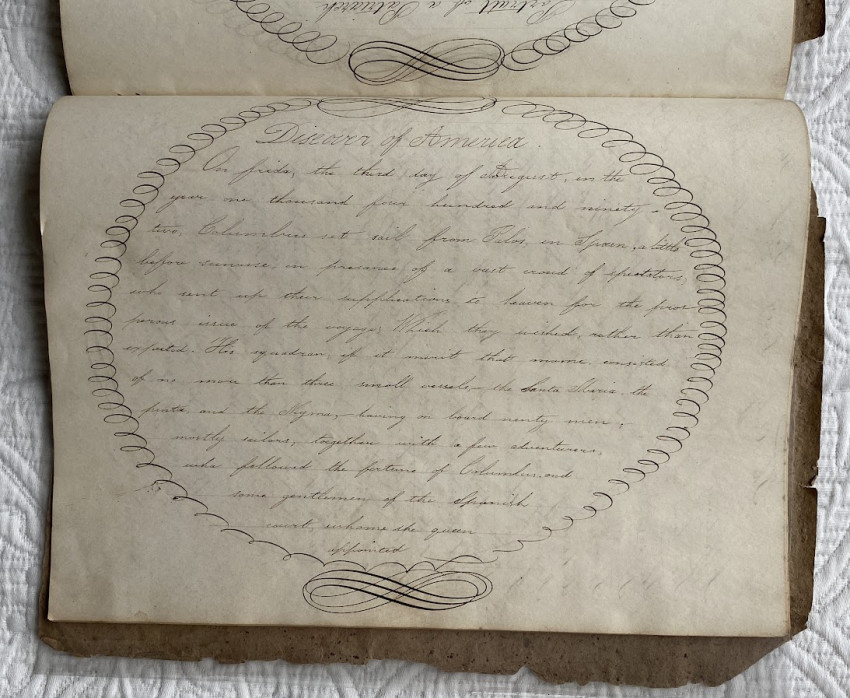 Portrait of a Patriarch
Discovery of America.
On friday, the third day of August, in the
year one thousand four hundred and ninety-
two, Columbus set sail from Palos, in Spain, a little
before sunrise, in presence of a vast crowd of spectators,
who sent up their supplications to heaven for the pros-
perous issue of the voyage, Which they wished, rather than
expected. His squadron, if it merit that name, consisted
of no more than three small vessels,— the Santa Maria, the
pinta, and the Nigna,— having on board ninety men,
mostly sailors, together with a few adventurers,
who followed the fortune of Columbus, and
some gentlemen of the Spanish
court, whome the queen
appointed